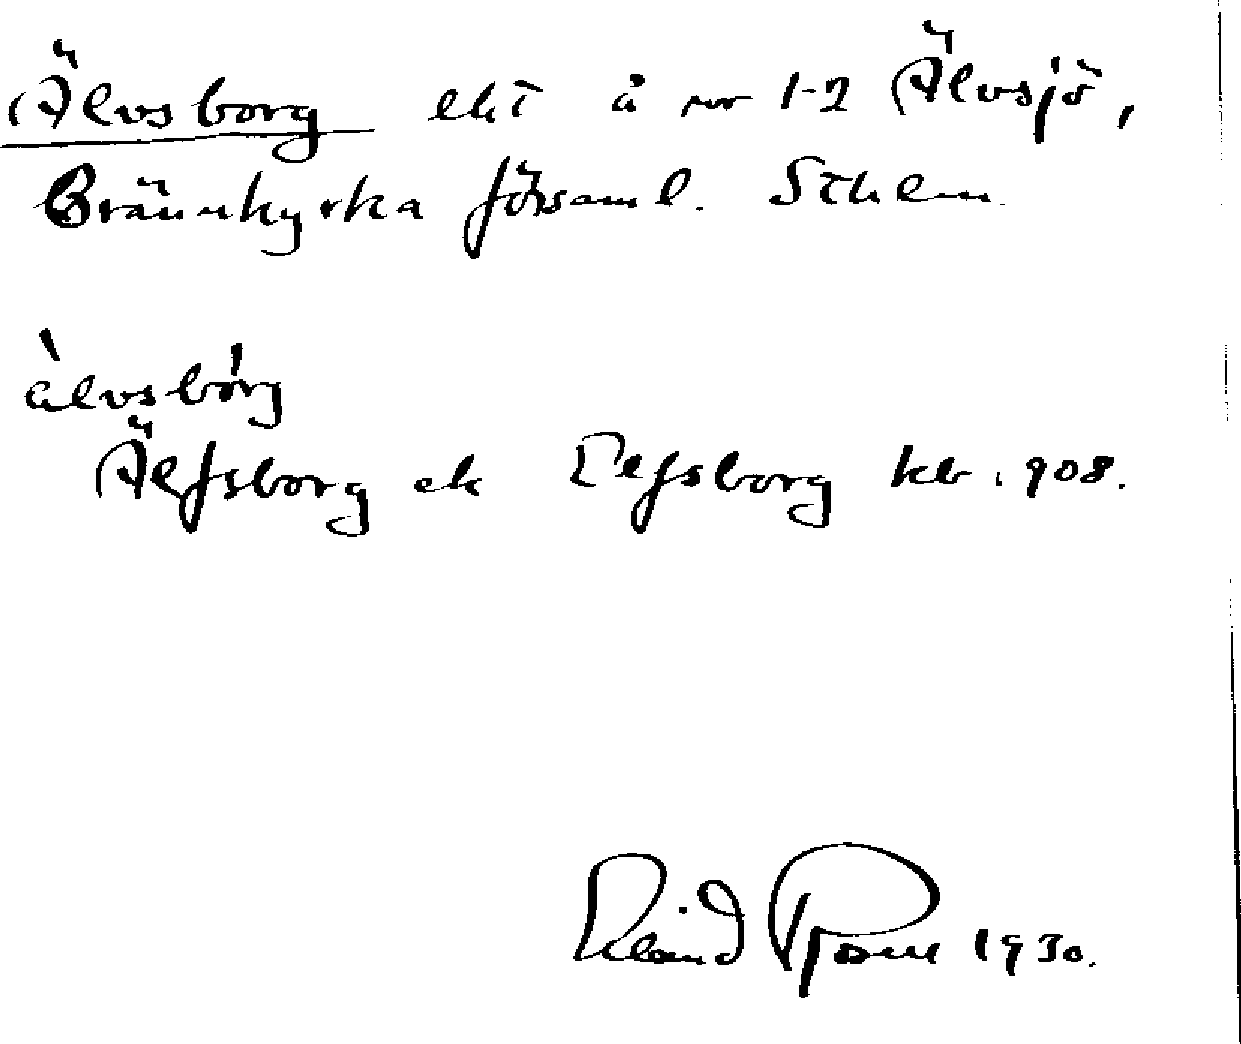 Älvsborg eht å nr 1-2 Älvsjö,
Brännkyrka församl. Sthlm
àlvsbórg
Älfsborg ek Elfsborg kb 1908.
1930.